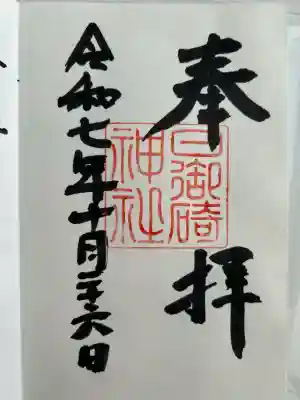 奉拝
日御碕
神社
令和七年十月二十六日